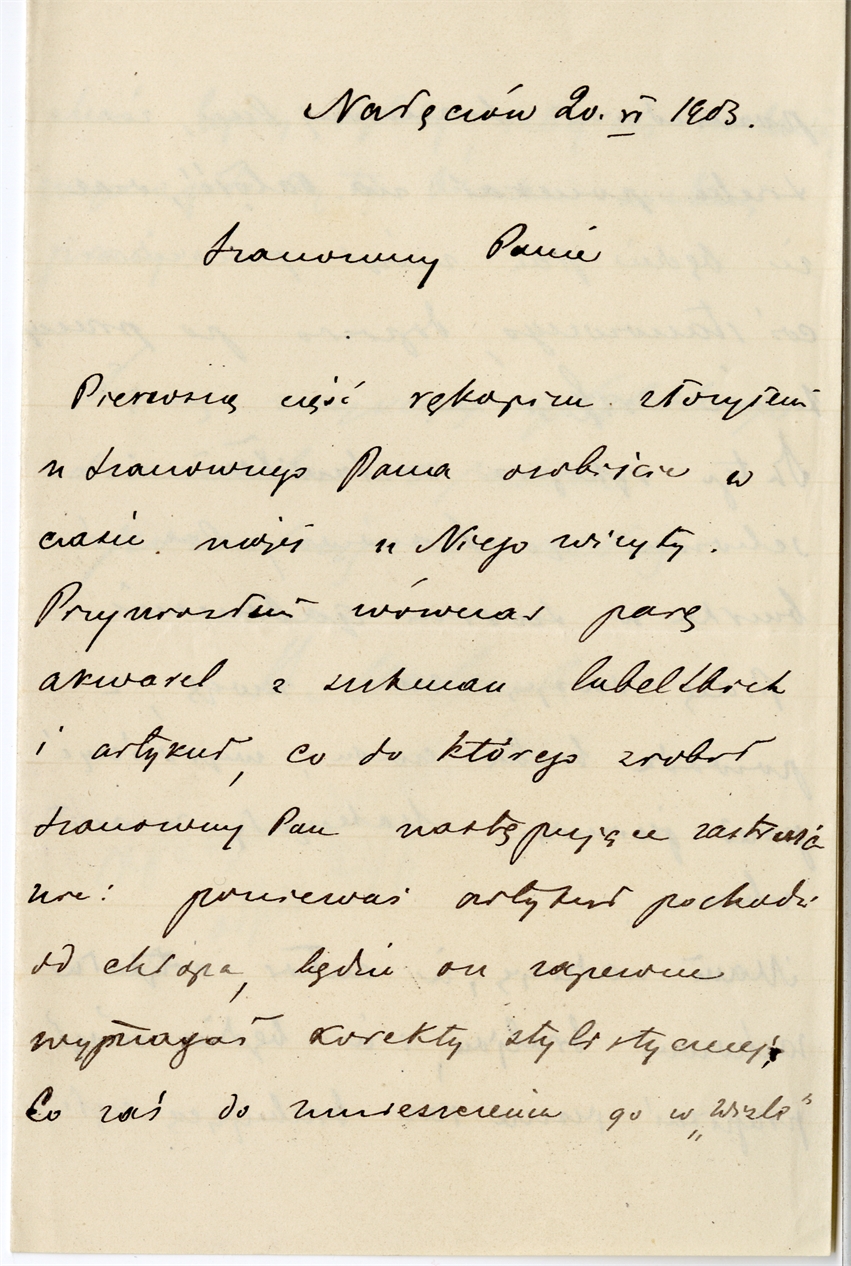 Nałęczów 20. VI 1903.
Szanowny Panie
Pierwszą część rękopisu złożyłem
u Szanownego Pana osobiście w
czasie mojej u Niego wizyty.
Przyniosłem wówczas parę
akwarel z sukman lubelskich
i artykuł, co do którego zrobił
Szanowny Pan następujące zastrzeże
nie: ponieważ artykuł pochodzi
od chłopa, będzie on zapewne
wymagał korekty stylistycznej,
Co zaś do zmieszczenia go w „Wiśle"